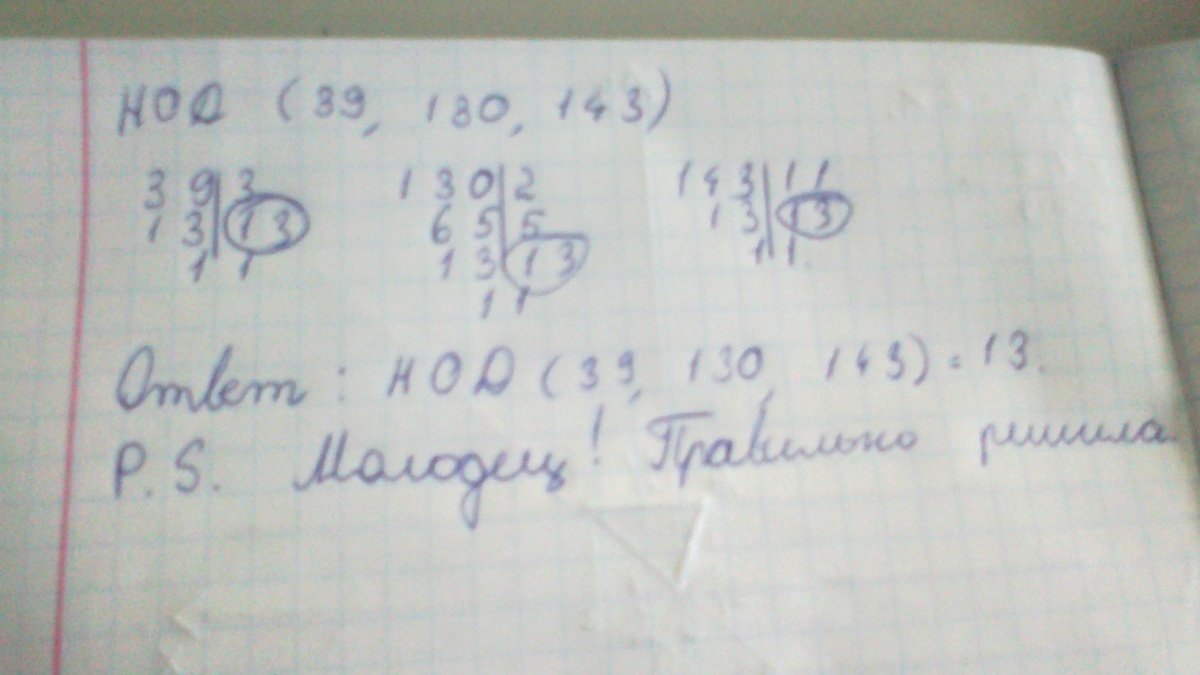 НОД (39, 130, 143)
39|3 130|2 143|11
13|13 65|5 13|13
1|1 13|13 1|1
1 1
Ответ: НОД (39, 130, 143) = 13.
P.S. Молодец! Правильно решила.